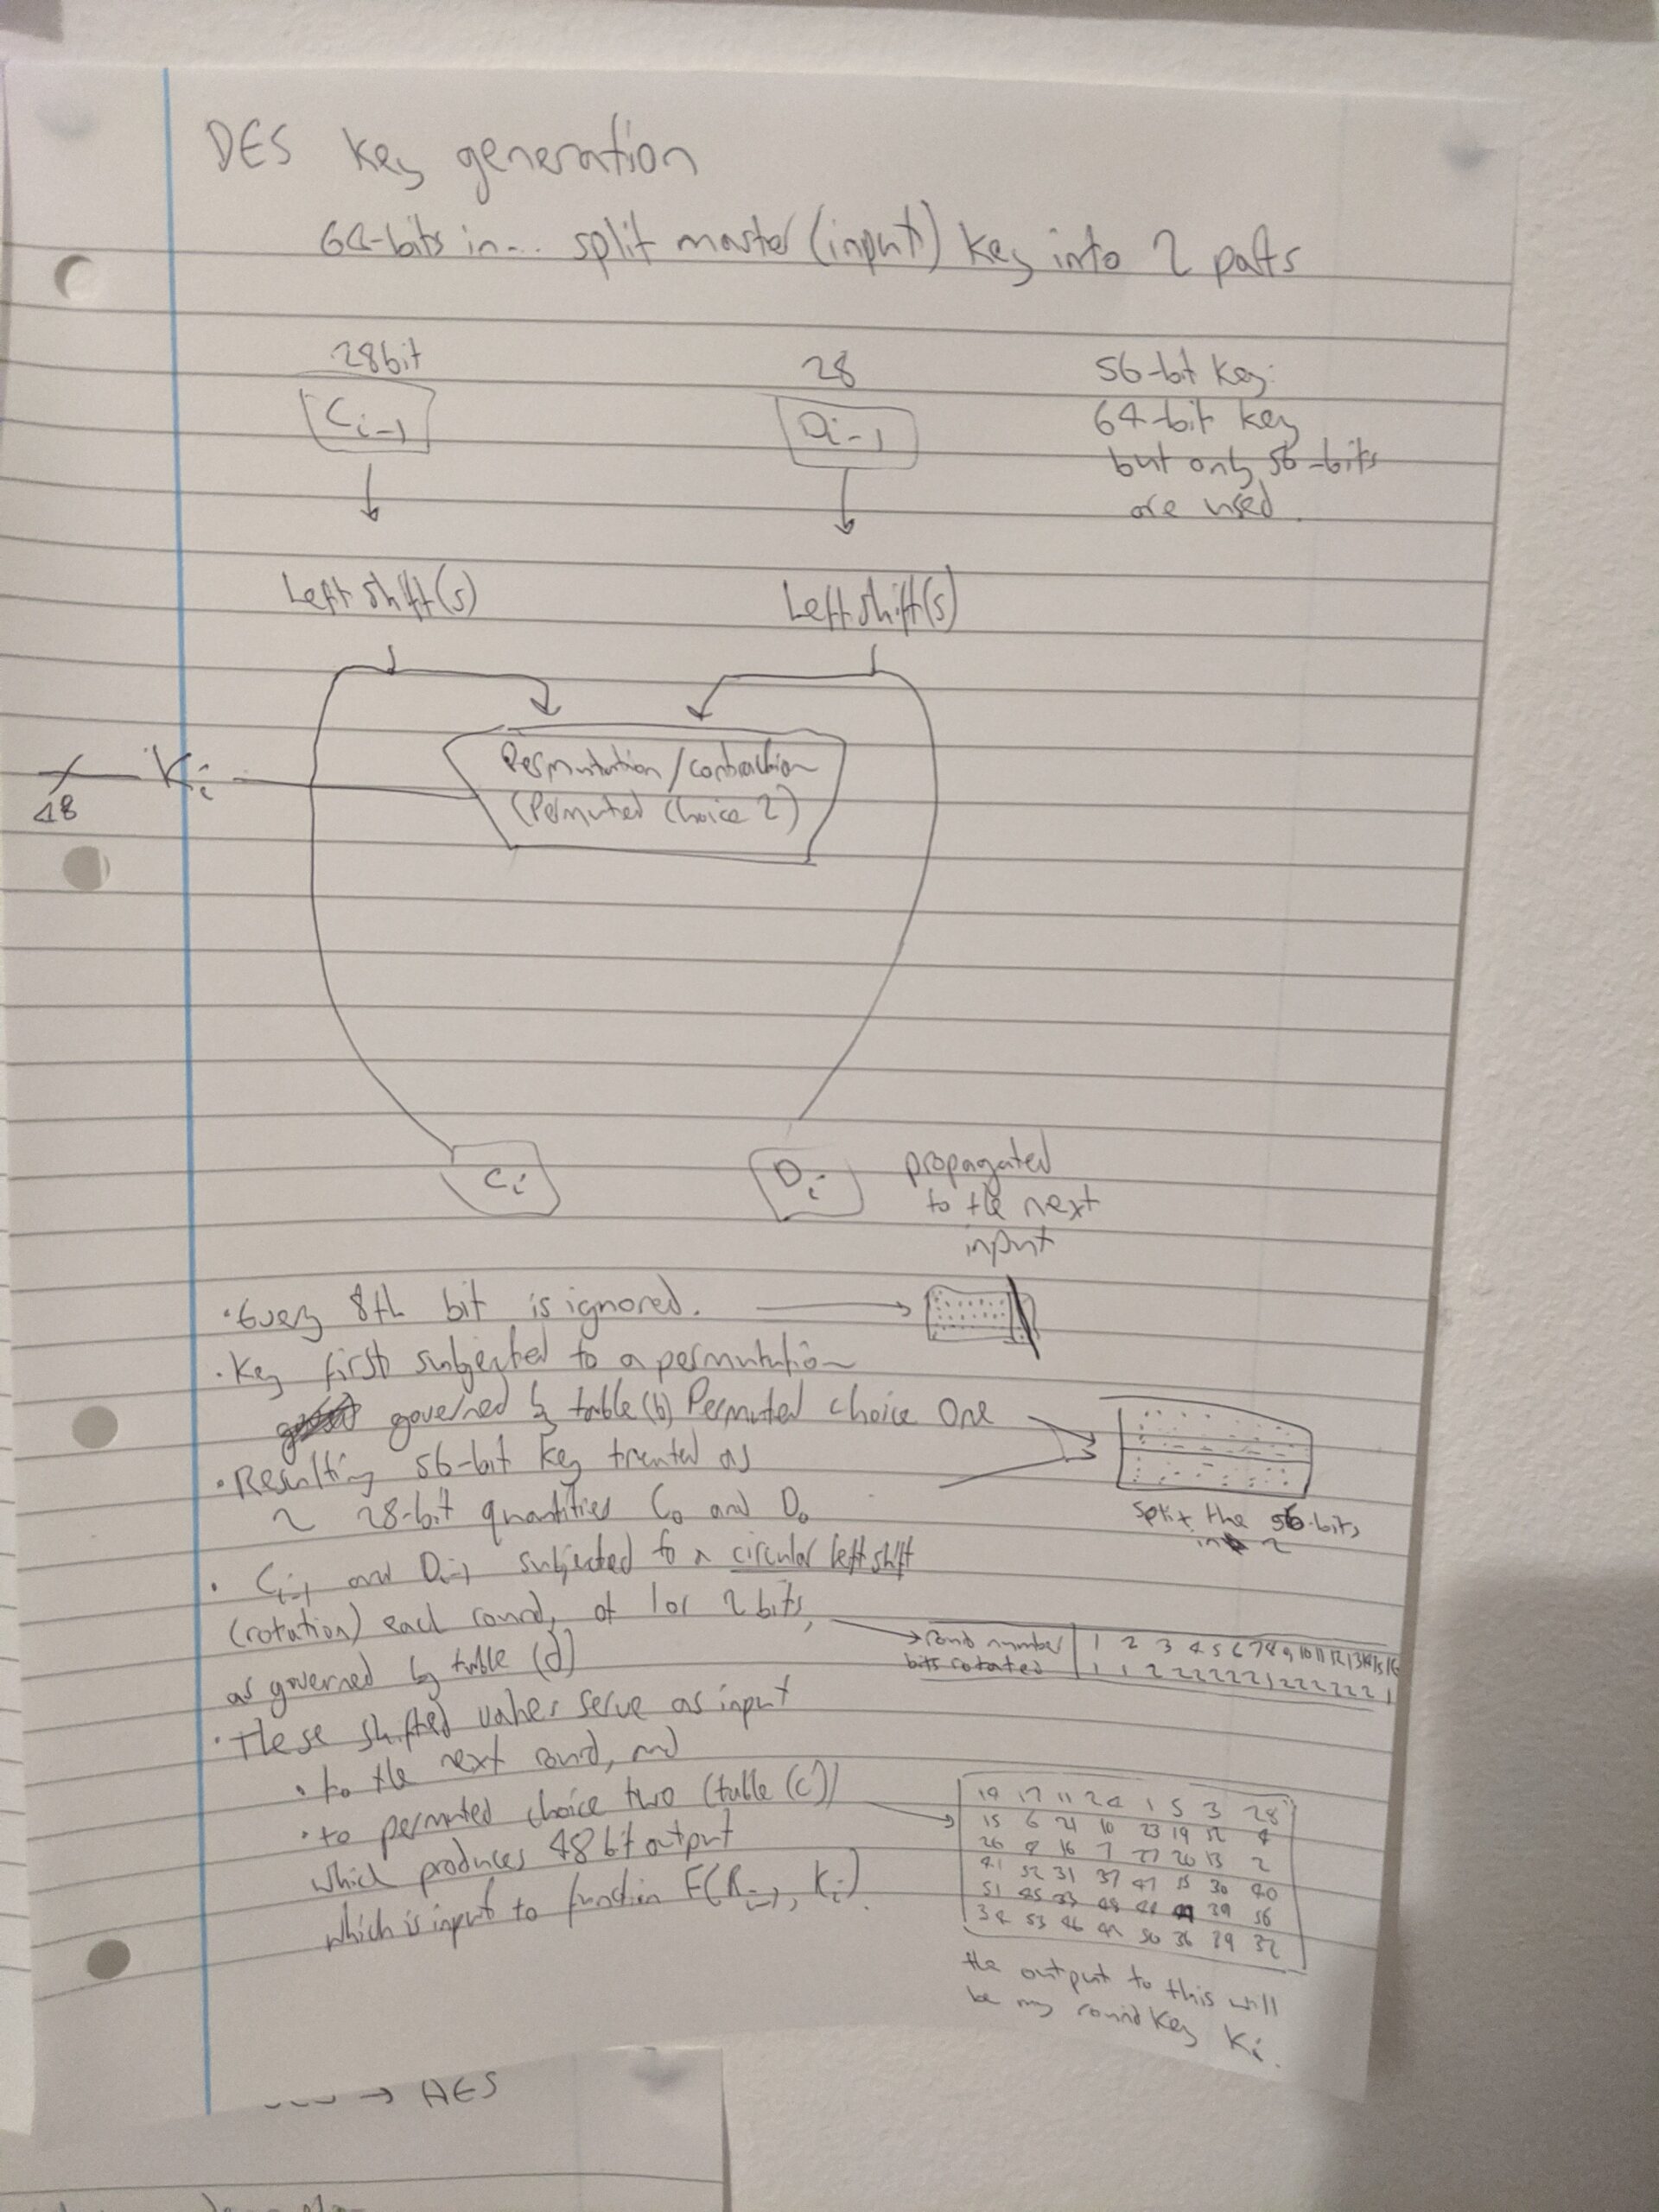 DES Key generation
64-bits in... split master (input) key into 2 parts
28bit
28
56-bit key:
C i-1
D i-1
64-bit key
but only 56-bits
are used.
Left shift(s)
Left shift(s)
Ki
48
Permutation/contraction
(Permuted Choice 2)
Ci
Di
propagated
to the next
input
· Every 8th bit is ignored.
· Key first subjected to a permutation
governed by table (b) Permuted choice One
· Resulting 56-bit key treated as
2 28-bit quantities C0 and D0
split the 56-bits
in 2
· Ci-1 and Di-1 subjected to a circular left shift
(rotation) each round, of 1 or 2 bits,
as governed by table (d)
round number 1 2 3 4 5 6 7 8 9 10 11 12 13 14 15 16
bits rotated 1 1 2 2 2 2 2 2 1 2 2 2 2 2 2 1
· These shifted values serve as input
· to the next round, and
· to permuted choice two (table (c))
which produces 48 bit output
which is input to function F(Ri-1, Ki).
17 11 24 1 5 3 28
15 6 21 10 23 19 12 4
26 8 16 7 27 20 13 2
41 52 31 37 47 30 40
51 45 33 48 44 39 56
34 53 46 42 50 36 29 32
the output to this will
be my round key Ki.
→ AES